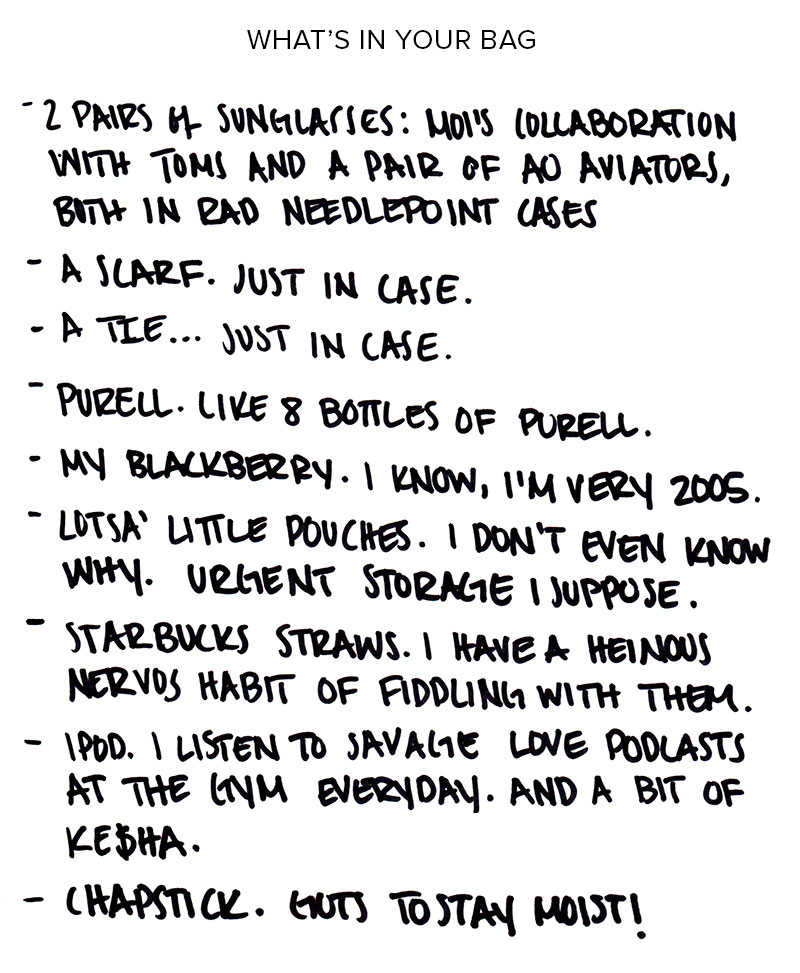 WHAT'S IN YOUR BAG
- 2 PAIRS OF SUNGLASSES: MOI'S COLLABORATION
WITH TOMS AND A PAIR OF AO AVIATORS,
BOTH IN RAD NEEDLEPOINT CASES
- A SCARF. JUST IN CASE.
- A TIE... JUST IN CASE.
- PURELL. LIKE 8 BOTTLES OF PURELL.
- MY BLACKBERRY. I KNOW, I'M VERY 2005.
- LOTSA' LITTLE POUCHES. I DON'T EVEN KNOW
WHY. URGENT STORAGE I SUPPOSE.
- STARBUCKS STRAWS. I HAVE A HEINOUS
NERVOS HABIT OF FIDDLING WITH THEM.
- IPOD. I LISTEN TO SAVAGE LOVE PODCASTS
AT THE GYM EVERYDAY. AND A BIT OF
KE$HA.
- CHAPSTICK. GUTS TO STAY MOIST!